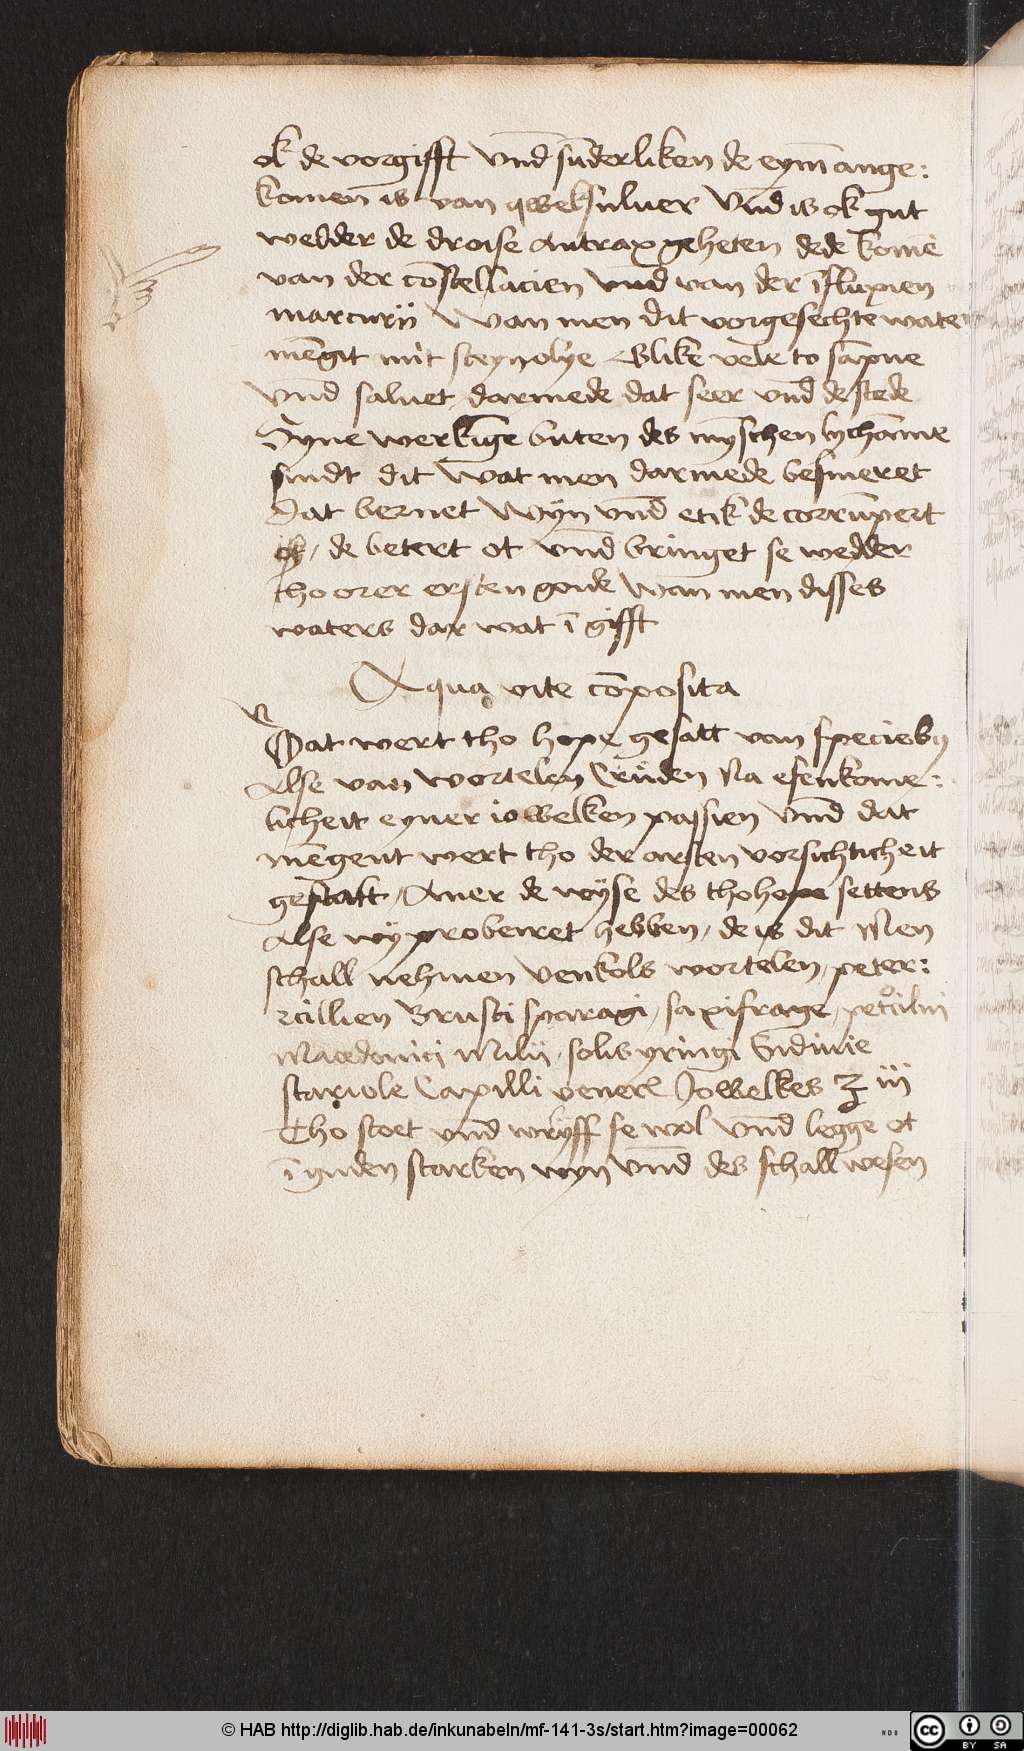 ok de vorgifft vnd sūderliken de eym̄ ange:
komen is van qwelsuluer vnd is ok gut
wedder de droise Antrax geheten dede komē
van der cōstellacien vnd van der īfluxien
marcurij Wan men dit vorgesechte water
mēgit mit steynolye Glike vele to sāpne
vnd saluet darmede dat seer vnd de stede
Syne werkīge buten des mȳschen lychāme
sindt dit wat men darmede besmeret
Dat bernet Wÿn vnd etik de corrūpert
de betert ot vnd bringet se wedder
tho orer ersten gode wan men disses
waters dar wat ī gifft
Aqua vite cōposita
Dat wert tho hope gesatt van specieb9
Alse van wortelen Crüden Na esenkome:
licheit eyner iowelken passien vnd dat
mēgent wert tho der arsten vorsichticheit
gestalt / Auer de wÿse des thohope settens
Alse wÿ probeiret hebben / de is dit Men
schall nehmen venkols wortelen / peter:
cillien Brusci sparagi / saxifrage / petcilini
Macedonici Milij / solis yringi Endiuie
scariole Capilli vener Jowelkes ʒ iij
Tho stoet vnd wrÿff se wol vnd legge ot
ī guden starken wyn vnd des schall wesen
© HAB http://diglib.hab.de/inkunabeln/mf-141-3s/start.htm?image=00062
WDB
cc BY SA